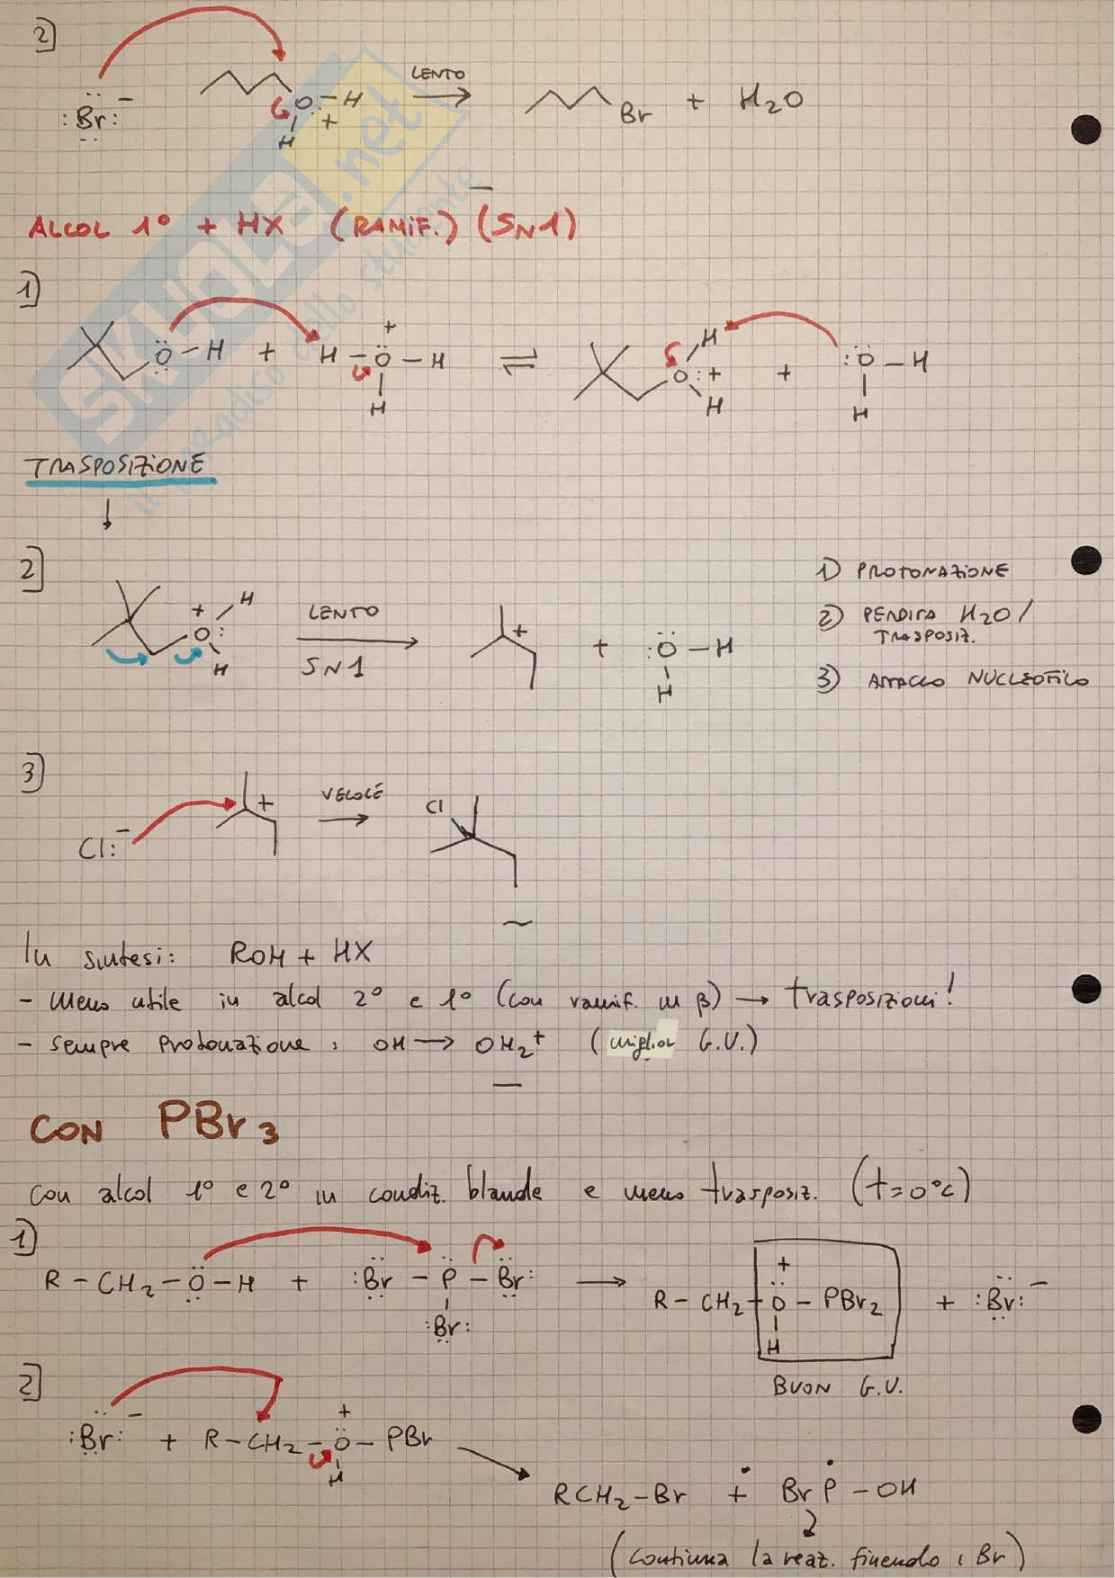 2)
:Br:⁻ O–H H + LENTO → Br + H2O
ALCOL 1° + HX (RAMIF.) (SN1)
1)
O–H + H–O–H H + ⇌ O:+ H H + :O–H H
TRASPOSIZIONE
↓
2)
+ O: H H LENTO SN1 → + + :O–H H
1) PROTONAZIONE
2) PERDITA H2O/
TRASPOSIZ.
3) ATTACCO NUCLEOFILO
3)
Cl:⁻ + VELOCE → Cl
In sintesi: ROH + HX
- meno utile in alcol 2° e 1° (con ramif. in β) → trasposizioni!
- sempre protonazione: OH → OH2+ (miglior G.U.)
CON PBr3
con alcol 1° e 2° in condiz. blande e meno trasposiz. (t=0°C)
1)
R–CH2–O–H + :Br–P–Br: :Br: → R–CH2–O–PBr2 + H + :Br:⁻
BUON G.U.
2)
:Br:⁻ + R–CH2–O–PBr + H
→ RCH2–Br + BrP–OH
(continua la reaz. finendo i Br)
SKUOLA.net